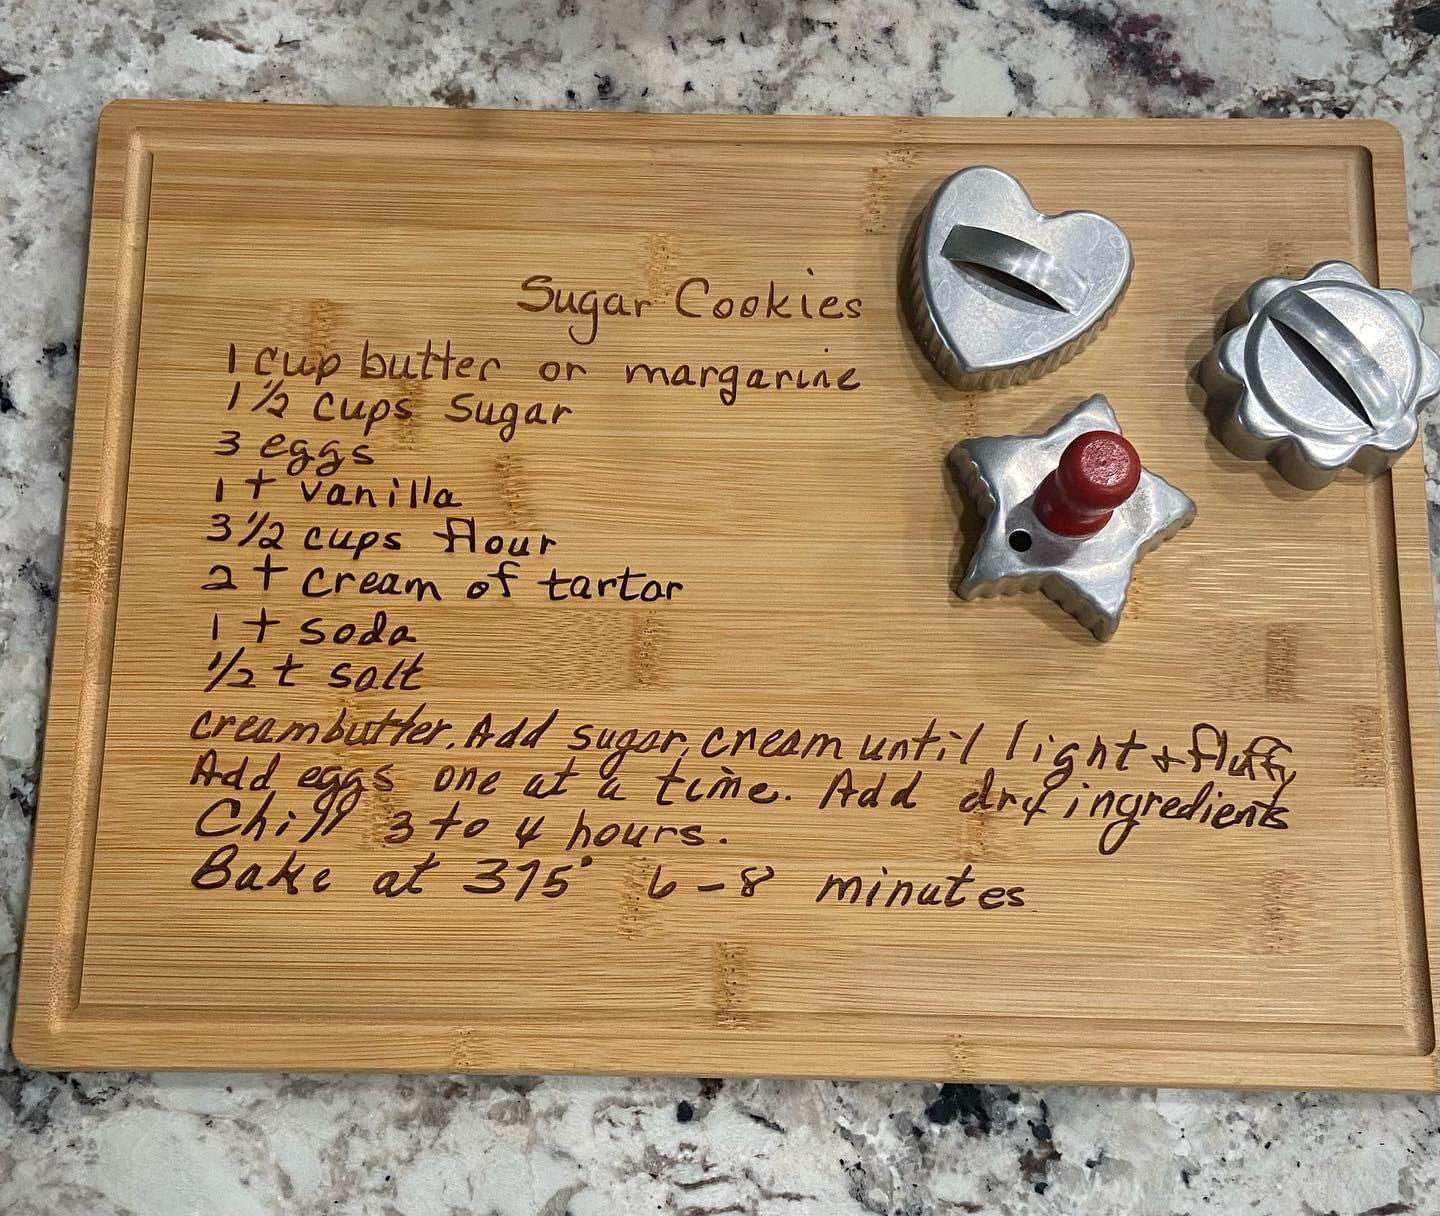 Sugar Cookies
1 cup butter or margarine
1 1/2 cups Sugar
3 eggs
1 t vanilla
3 1/2 cups flour
2 t cream of tartar
1 t soda
1/2 t salt
cream butter. Add sugar, cream until light + fluffy
Add eggs one at a time. Add dry ingredients
Chill 3 to 4 hours.
Bake at 375° 6-8 minutes